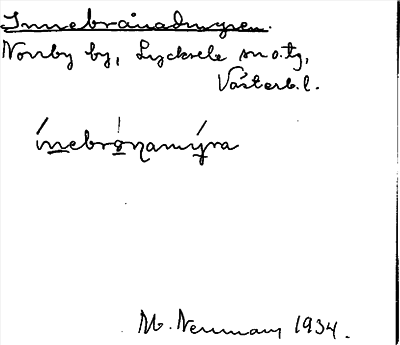 Innebrånadmyren.
Norrby by, Lycksele sn o. tg,
Västerb. l.
ínebrǫ́namýra
M. Neuman, 1934.